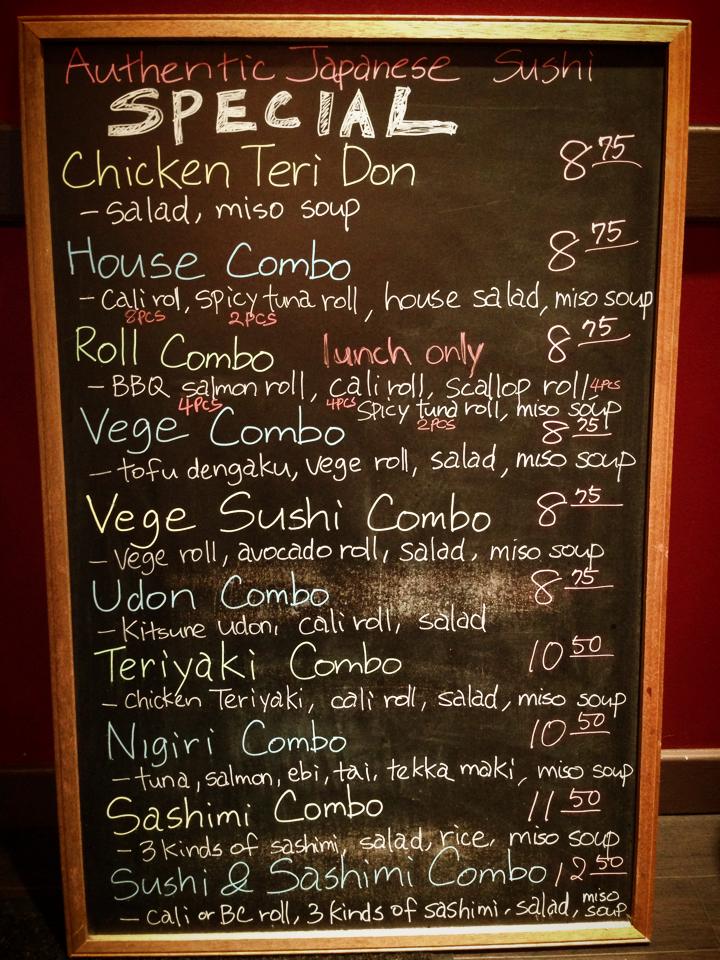 Authentic Japanese Sushi
SPECIAL
Chicken Teri Don 8 75
- salad, miso soup
House Combo 8 75
- Cali rol, spicy tuna roll, house salad, miso soup
8pcs 2pcs
Roll Combo lunch only 8 75
- BBQ salmon roll, cali roll, scallop roll 4pcs
4pcs 4pcs spicy tuna roll, miso soup
2pcs
Vege Combo 8 75
- tofu dengaku, vege roll, salad, miso soup
Vege Sushi Combo 8 75
- vege roll, avocado roll, salad, miso soup
Udon Combo 8 75
- Kitsune udon, cali roll, salad
Teriyaki Combo 10 50
- chicken Teriyaki, cali roll, salad, miso soup
Nigiri Combo 10 50
- tuna, salmon, ebi, tai, tekka maki, miso soup
Sashimi Combo 11 50
- 3 kinds of sashimi, salad, rice, miso soup
Sushi & Sashimi Combo 12 50
- cali or BC roll, 3 kinds of sashimi, salad, miso soup